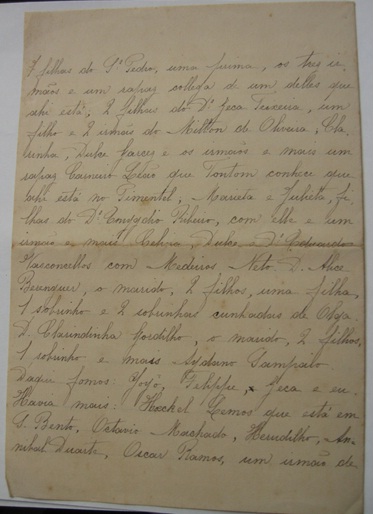 7 filhas do Sr Pedro, uma prima, os tres ir-
mãos e um rapaz collega de um delles que
ahi está, 2 filhas do Dr Jeca Teixeira, um
filho e 2 irmãs do Milton de Oliveira, Cla-
rinha, Dulce Garces e os irmãos e mais um
rapaz Carneiro Leão que Tontom conhece que
ahi está no Pimentel, Marieta e Julieta, fi-
lhas do Dr Emygdio Ribeiro, com elle e um
irmão e mais Celina, Dulce e Dr
Vasconcellos com Medeiros Neto. D. Alice
Berenguer, o marido, 2 filhos, uma filha,
1 sobrinho e 2 sobrinhas cunhadas de Olga.
D. Clarindinha Gordilho, o marido, 2 filhos,
1 sobrinho e mais Sampaio.
Daqui fomos: Yoyó, Felippe, Jeca e eu.
Havia mais: Haekel Lemos que está em
S. Bento, Octavio Machado, An-
nibal Duarte, Oscar Ramos, um irmão de